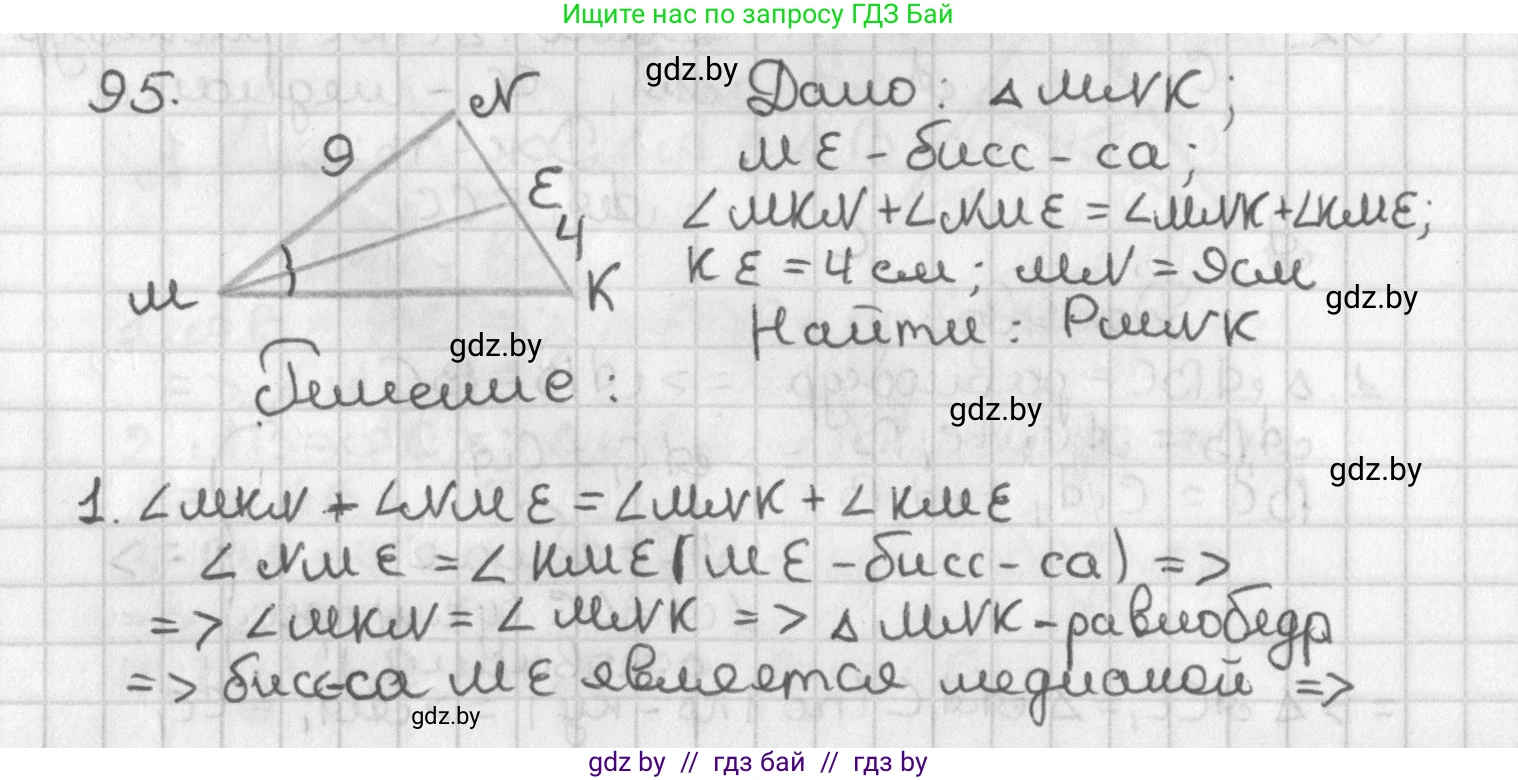 Ищите нас по запросу ГДЗ Бай
95.
N
9
E
4
M
K
gdz.by
Дано: △ MNK;
ME - бисс-са;
∠MKN + ∠NME = ∠MNK + ∠KME;
KE = 4 см; MN = 9 см
gdz.by
Найти: PMNK
gdz.by
Решение:
gdz.by
gdz.by
1. ∠MKN + ∠NME = ∠MNK + ∠KME
∠NME = ∠KME (ME - бисс-са) =>
=> ∠MKN = ∠MNK => △ MNK - равнобедр
=> бисс-са ME является медианой =>
gdz.by
gdz by // гдз бай // гдз by